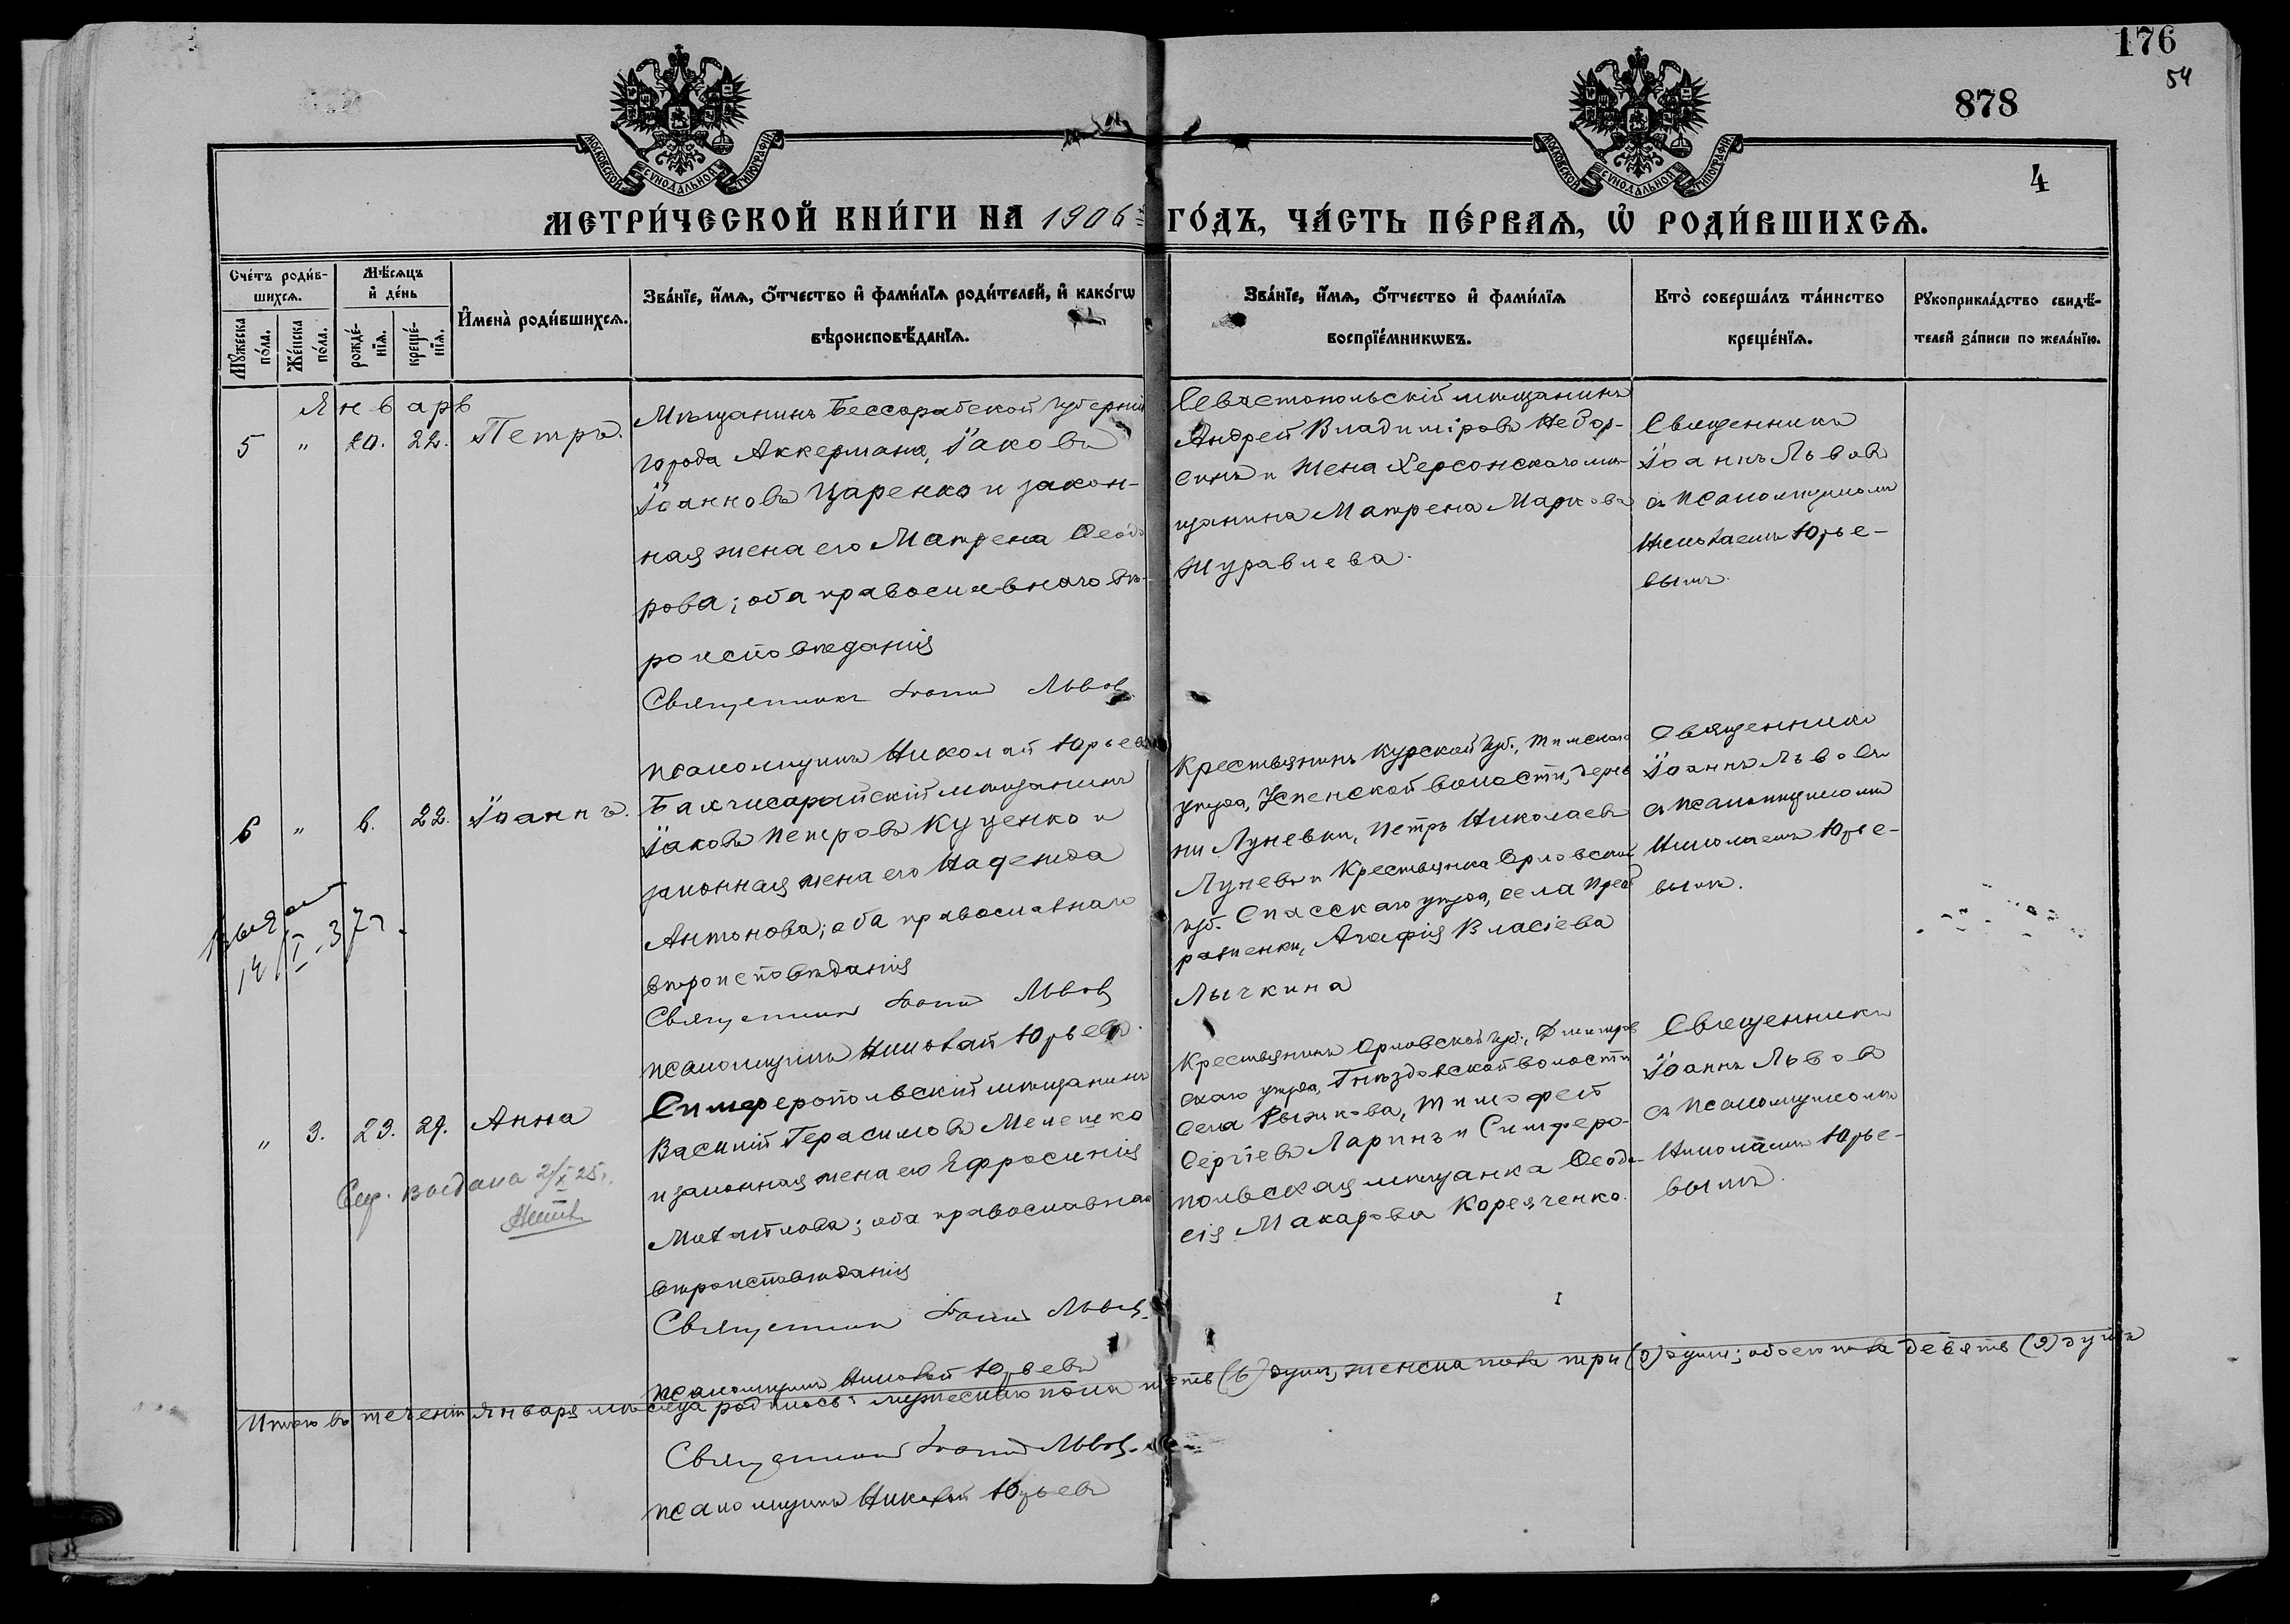 176
54
878
4
МОСКОВСКОЙ СѴНОДАЛЬНОЙ ТИПОГРАФІИ
МОСКОВСКОЙ СѴНОДАЛЬНОЙ ТИПОГРАФІИ
МЕТРИ́ЧЕСКОЙ КНИ́ГИ НА 1906й ГО́ДЪ, ЧА́СТЬ ПЕ́РВАѦ, Ѡ҆ РОДИ́ВШИХСѦ.
Сче́тъ роди́в-
шихсѧ.
Мꙋжеска по́ла.
Же́нска по́ла.
Мѣ́сѧцъ
и҆ де́нь
рожде́-
нїѧ.
креще́-
нїѧ.
И҆мена̀ роди́вшихсѧ.
Зва́нїе, и҆́мѧ, ѻ҆́тчество и҆ фами́лїѧ роди́телей, и҆ како́гѡ
вѣроисповѣ́данїѧ.
Зва́нїе, и҆́мѧ, ѻ҆́тчество и҆ фами́лїѧ
воспрїе́мникѡвъ.
Кто̀ соверша́лъ та́инство
креще́нїѧ.
Рꙋкоприкла́дство свидѣ́-
телей за́писи по жела́нїю.
Январь
5 " 20. 22. Петръ.
Мѣщанинъ Бессарабской губерніи
города Аккермана, Іаковъ
Іоанновъ Царенко и закон-
ная жена его Матрена Ѳеодо
рова; оба православнаго вѣ-
роисповѣданія
Священникъ Іоаннъ Львовъ
псаломщикъ Николай Юрьевъ
Севастопольскій мѣщанинъ
Андрей Владиміровъ
синъ и жена Херсонскаго мѣ-
щанина Матрена Маркова
Журавлева.
Священникъ
Іоаннъ Львовъ
съ псаломщикомъ
Николаемъ Юрье-
вымъ.
6 " 6. 22. Іоаннъ.
14/I-37г.
Бахчисарайскій мѣщанинъ
Іаковъ Петровъ Куценко и
законная жена его Надежда
Антонова; оба православнаго
вѣроисповѣданія
Священникъ Іоаннъ Львовъ
псаломщикъ Николай Юрьевъ.
Крестьянинъ Курской губ., Тимскаго
уѣзда, Успенской волости, дерев
ни Луневки, Петръ Николаевъ
Луневъ и Крестьянка Орловской
губ. Спасскаго уѣзда, села
Агафія Власіева
Лычкина
Священникъ
Іоаннъ Львовъ
съ псаломщикомъ
Николаемъ Юрье-
вымъ.
" 3. 23. 29. Анна
выдана 2/X 25г.
Симферопольскій мѣщанинъ
Василій Герасимовъ Мелешко
и законная жена его Ефросинія
Михайлова; оба православнаго
вѣроисповѣданія
Священникъ Іоаннъ Львовъ.
псаломщикъ Николай Юрьевъ
Крестьянинъ Орловской губ., Дмитров
скаго уѣзда, Гнѣздовской волости
села Рыжкова, Тимофей
Сергіевъ Ларинъ и Симферо-
польская мѣщанка Ѳеодо-
сія Макарова Корятченко.
Священникъ
Іоаннъ Львовъ
съ псаломщикомъ
Николаемъ Юрье-
вымъ.
Итого въ теченіи января мѣсяца родилось: мужескаго пола шесть (6) душъ, женска пола три (3) души; обоего пола девять (9) душъ
Священникъ Іоаннъ Львовъ.
псаломщикъ Николай Юрьевъ